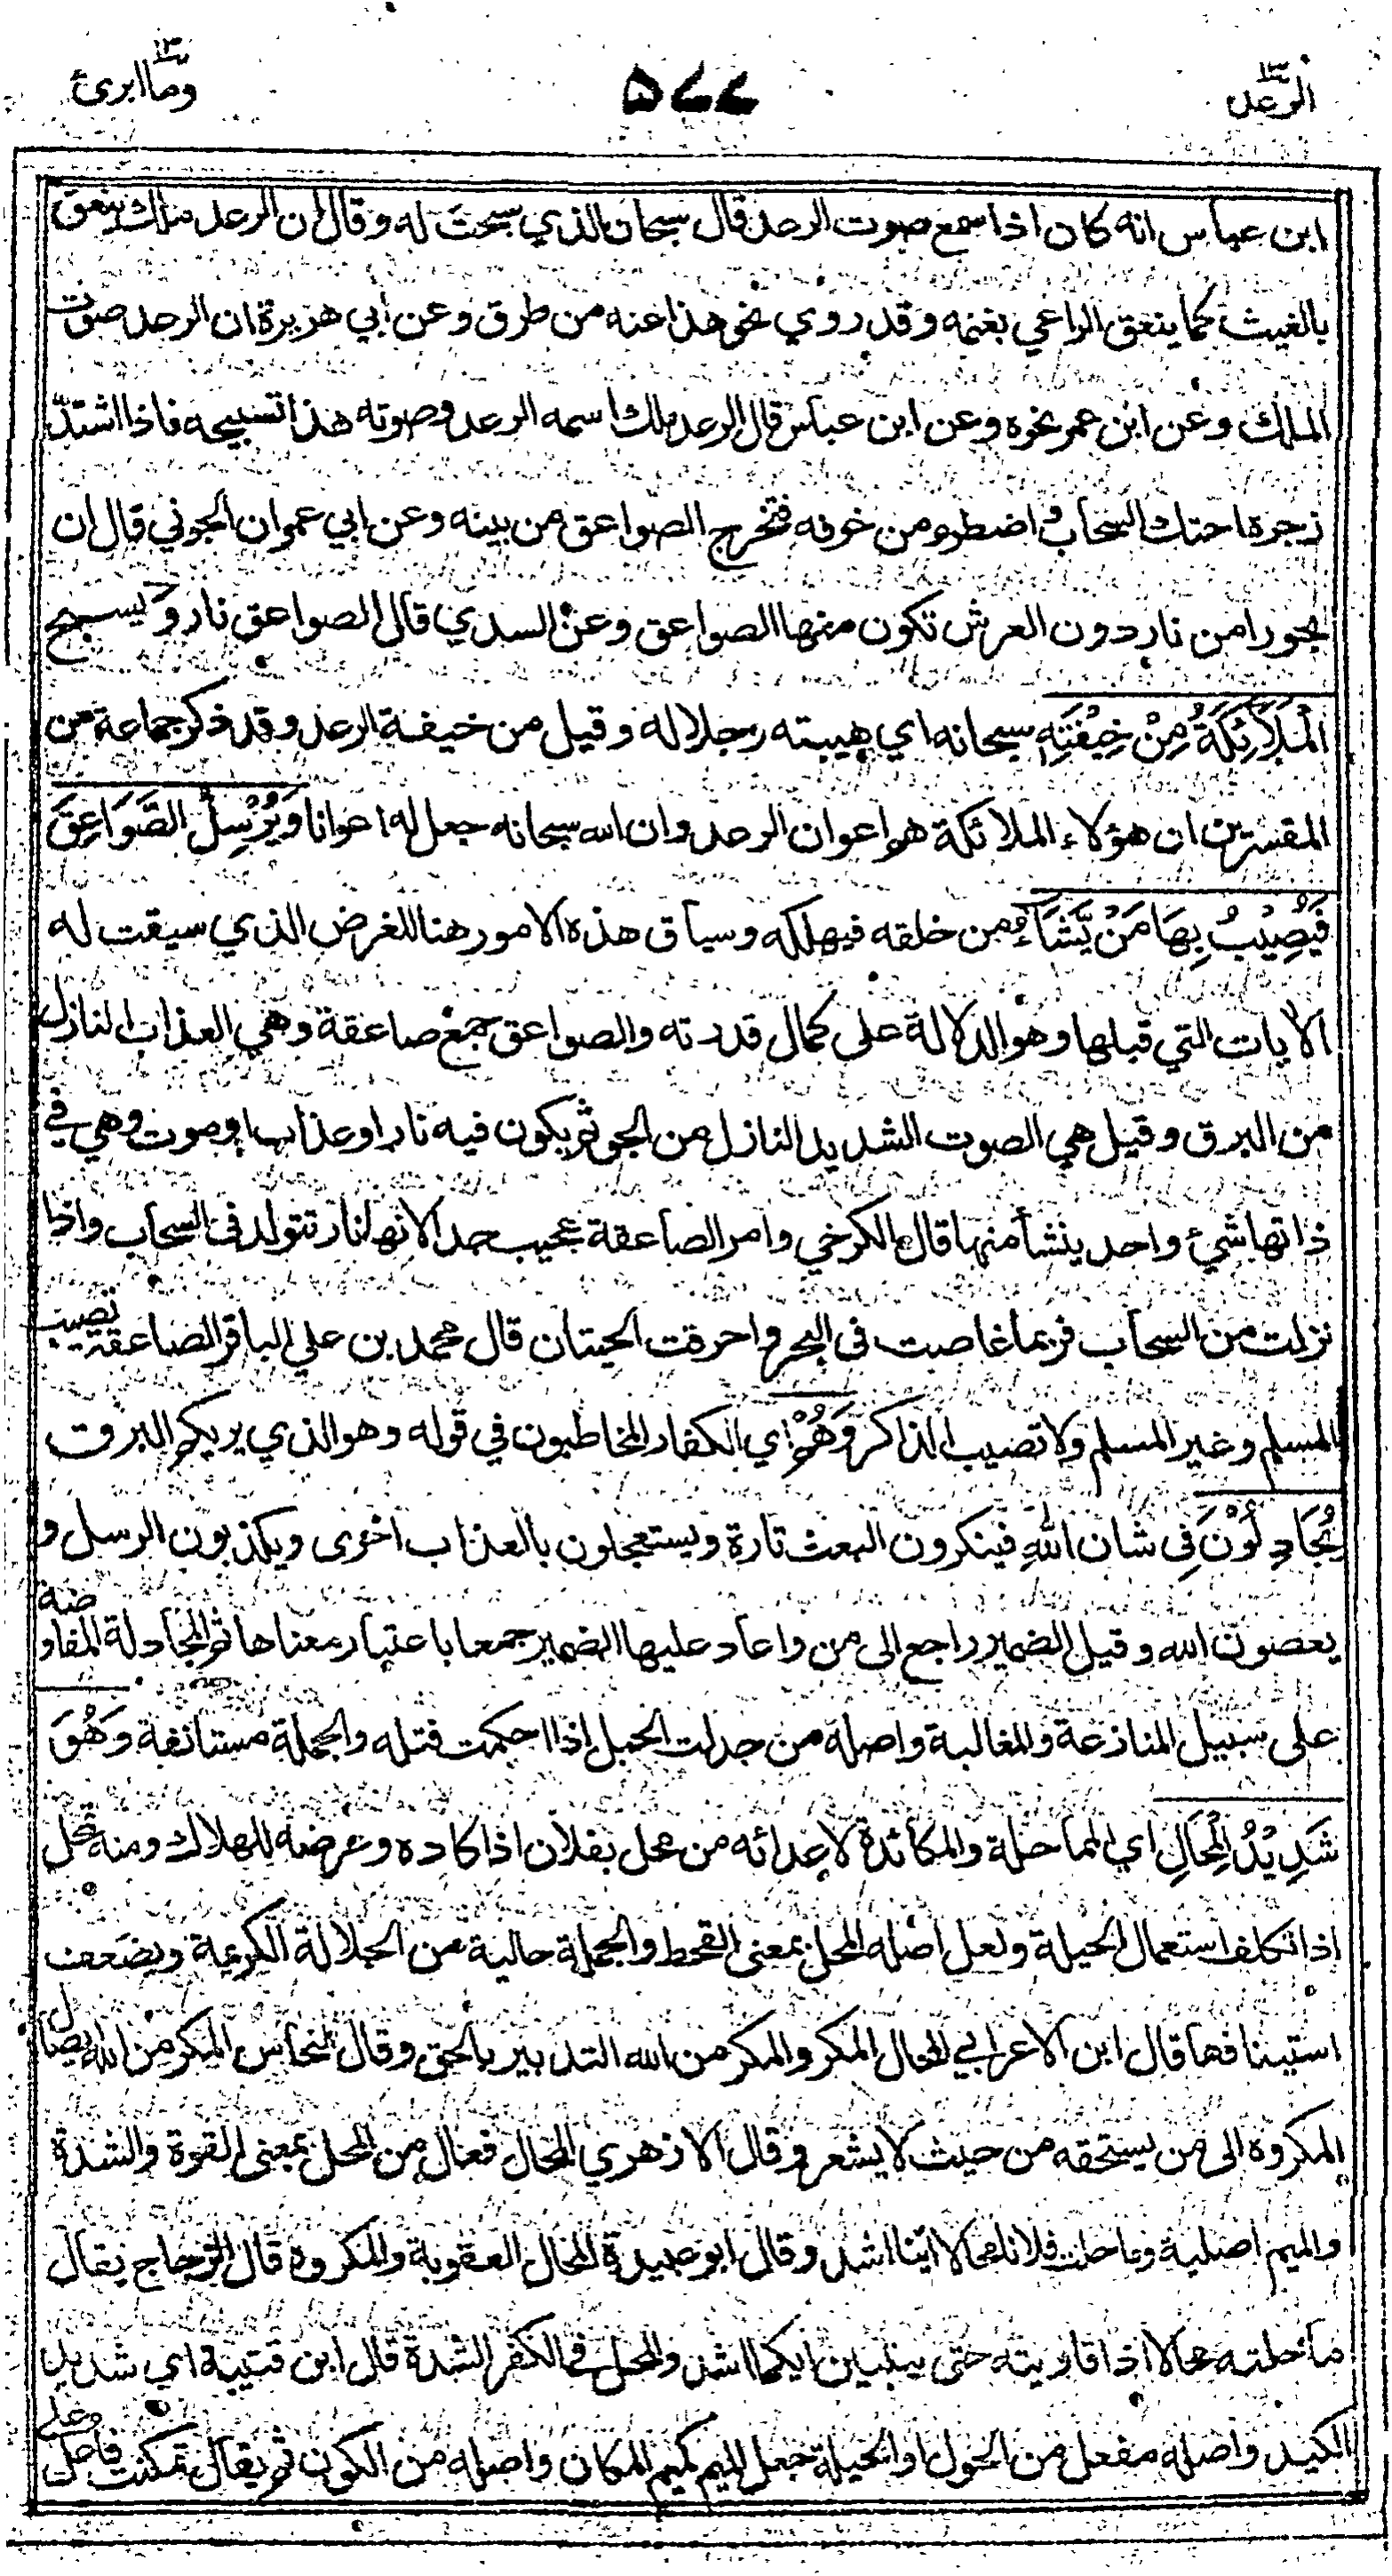 الرعد ١٣
٥٧٧
وما ابرئ ١٣
ابن عباس انه كان اذا سمع صوت الرعد قال سبحان الذي سبحت له وقال ان الرعد ملك ينعق
بالغيث كما ينعق الراعي بغنمه وقد روي نحو هذا عنه من طرق وعن ابي هريرة ان الرعد صوت
الملك وعن ابن عمر نحوه وعن ابن عباس قال الرعد ملك اسمه الرعد وصوته هذا تسبيحه فاذا اشتدّ
زجره احتك السحاب واضطرم من خوفه فتخرج الصواعق من بينه وعن ابي عمران الجوني قال ان
بحورا من نار دون العرش تكون منها الصواعق وعن السدي قال الصواعق نار وَ يسبح
الْمَلَائِكَةُ مِنْ خِيْفَتِهِ سبحانه اي هيبته وجلاله وقيل من خيفة الرعد وقد ذكر جماعة من
المفسرين ان هؤلاء الملائكة هم اعوان الرعد وان الله سبحانه جعل له اعوانا وَيُرْسِلُ الصَّوَاعِقَ
فَيُصِيْبُ بِهَا مَنْ يَّشَاءُ من خلقه فيهلكه وسياق هذه الامور هنا للغرض الذي سيقت له
الآيات التي قبلها وهو الدلالة على كمال قدرته والصواعق جمع صاعقة وهي العذاب النازل
من البرق وقيل هي الصوت الشديد النازل من الجو ثم يكون فيه نار او عذاب او صوت وهي في
ذاتها شيئ واحد ينشأ منها قال الكرخي وامر الصاعقة عجيب جدا لانها نار تتولد فى السحاب واذا
نزلت من السحاب فربما غاصت فى البحر واحرقت الحيتان قال محمد بن علي الباقر الصاعقة تصيب
المسلم وغير المسلم ولا تصيب الذاكر وَهُمْ اي الكفار المخاطبون في قوله وهو الذي يريكم البرق
يُجَادِلُوْنَ فِى شان اللهِ فينكرون البعث تارة ويستعجلون بالعذاب اخرى ويكذبون الرسل و
يعصون الله وقيل الضمير راجع الى من واعاد عليها الضمير جمعا باعتبار معناها ثم المجادلة المفاوضة
على سبيل المنازعة والمغالبة واصله من جدلت الحبل اذا احكمت فتله والجملة مستانفة وَهُوَ
شَدِيْدُ الْمِحَالِ اي المماحلة والمكائدة لاعدائه من محل بفلان اذا كاده وعرضه للهلاك ومنه تمحل
اذا تكلف استعمال الحيلة ولعل اصله المحل بمعنى القحط والجملة حالية من الجلالة الكريمة ويضعف
استينافها قال ابن الاعرابي المحال المكر والمكر من الله التدبير بالحق وقال النحاس المكر من الله ايصال
المكروه الى من يستحقه من حيث لا يشعر وقال الازهري المحال فعال من المحل بمعنى القوة والشدة
والميم اصلية وماحلت فلانا محالا اينا اشد وقال ابو عبيدة المحال العقوبة والمكروه قال الزجاج يقال
ماحلته محالا اذا قاويته حتى يتبين ايكما اشد والمحل في الكفر الشدة قال ابن قتيبة اي شديد
الكيد واصله مفعل من الحول او الحيلة جعل الميم كميم المكان واصله من الكون ثم يقال تمكنت